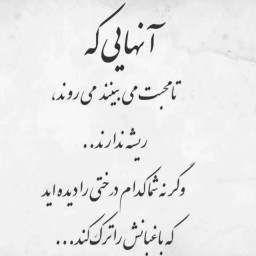 آنهایی که
تا محبت می بینند می روند،
ریشه ندارند..
وگرنه شما کدام درختی را دیده اید
که باغبانش را ترک کند...